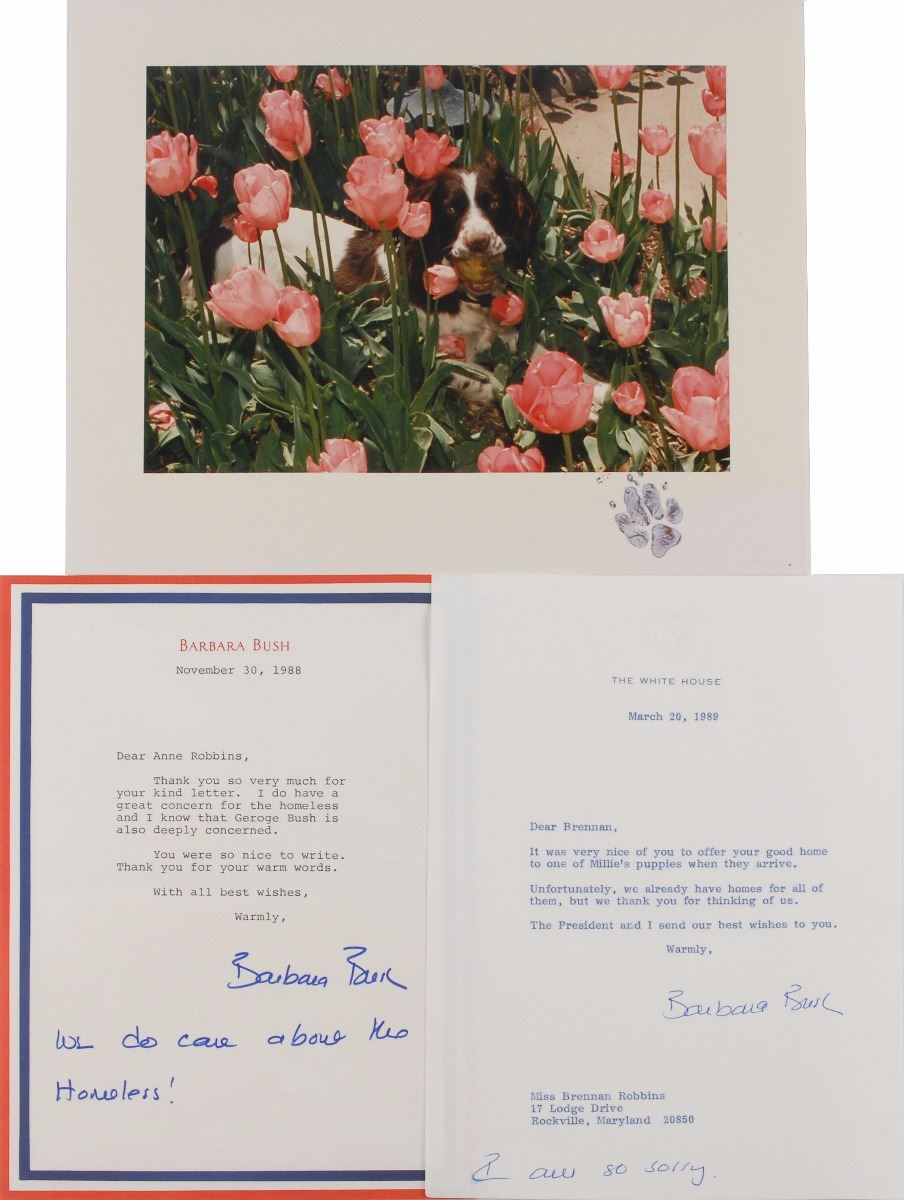 BARBARA BUSH
November 30, 1988
Dear Anne Robbins,
Thank you so very much for
your kind letter. I do have a
great concern for the homeless
and I know that Geroge Bush is
also deeply concerned.
You were so nice to write.
Thank you for your warm words.
With all best wishes,
Warmly,
Barbara Bush
We do care about the
Homeless!
THE WHITE HOUSE
March 20, 1989
Dear Brennan,
It was very nice of you to offer your good home
to one of Millie's puppies when they arrive.
Unfortunately, we already have homes for all of
them, but we thank you for thinking of us.
The President and I send our best wishes to you.
Warmly,
Barbara Bush
Miss Brennan Robbins
17 Lodge Drive
Rockville, Maryland 20850
I am so sorry.